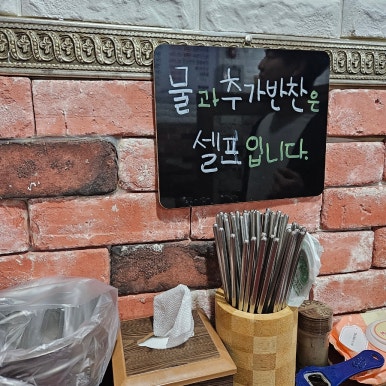 물과 추가반찬은
셀프입니다.